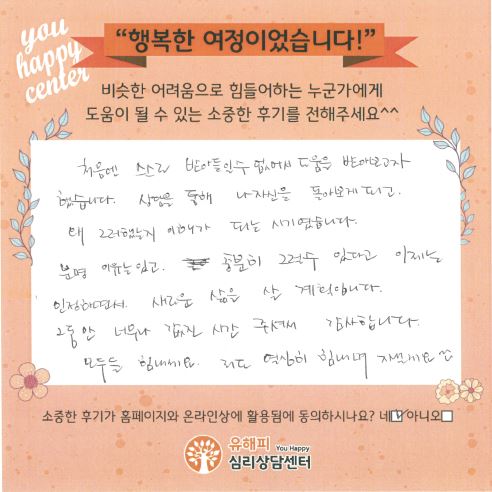 you
happy
center
“행복한 여정이었습니다!”
비슷한 어려움으로 힘들어하는 누군가에게
도움이 될 수 있는 소중한 후기를 전해주세요^^
처음엔 스스로 받아들일수 없어서 도움을 받아보고자
했습니다. 상담을 통해 나 자신을 돌아보게 되고.
왜 그러했는지 이해가 되는 시기였습니다.
분명 이유는 있고. 충분히 그럴수 있다고 이제는
인정하면서. 새로운 삶을 살 계획입니다.
그동안 너무나 값진 시간 주셔서 감사합니다.
모두들 힘내세요. 저도 열심히 힘내며
소중한 후기가 홈페이지와 온라인상에 활용됨에 동의하시나요? 네 아니오
유해피 You Happy
심리상담센터